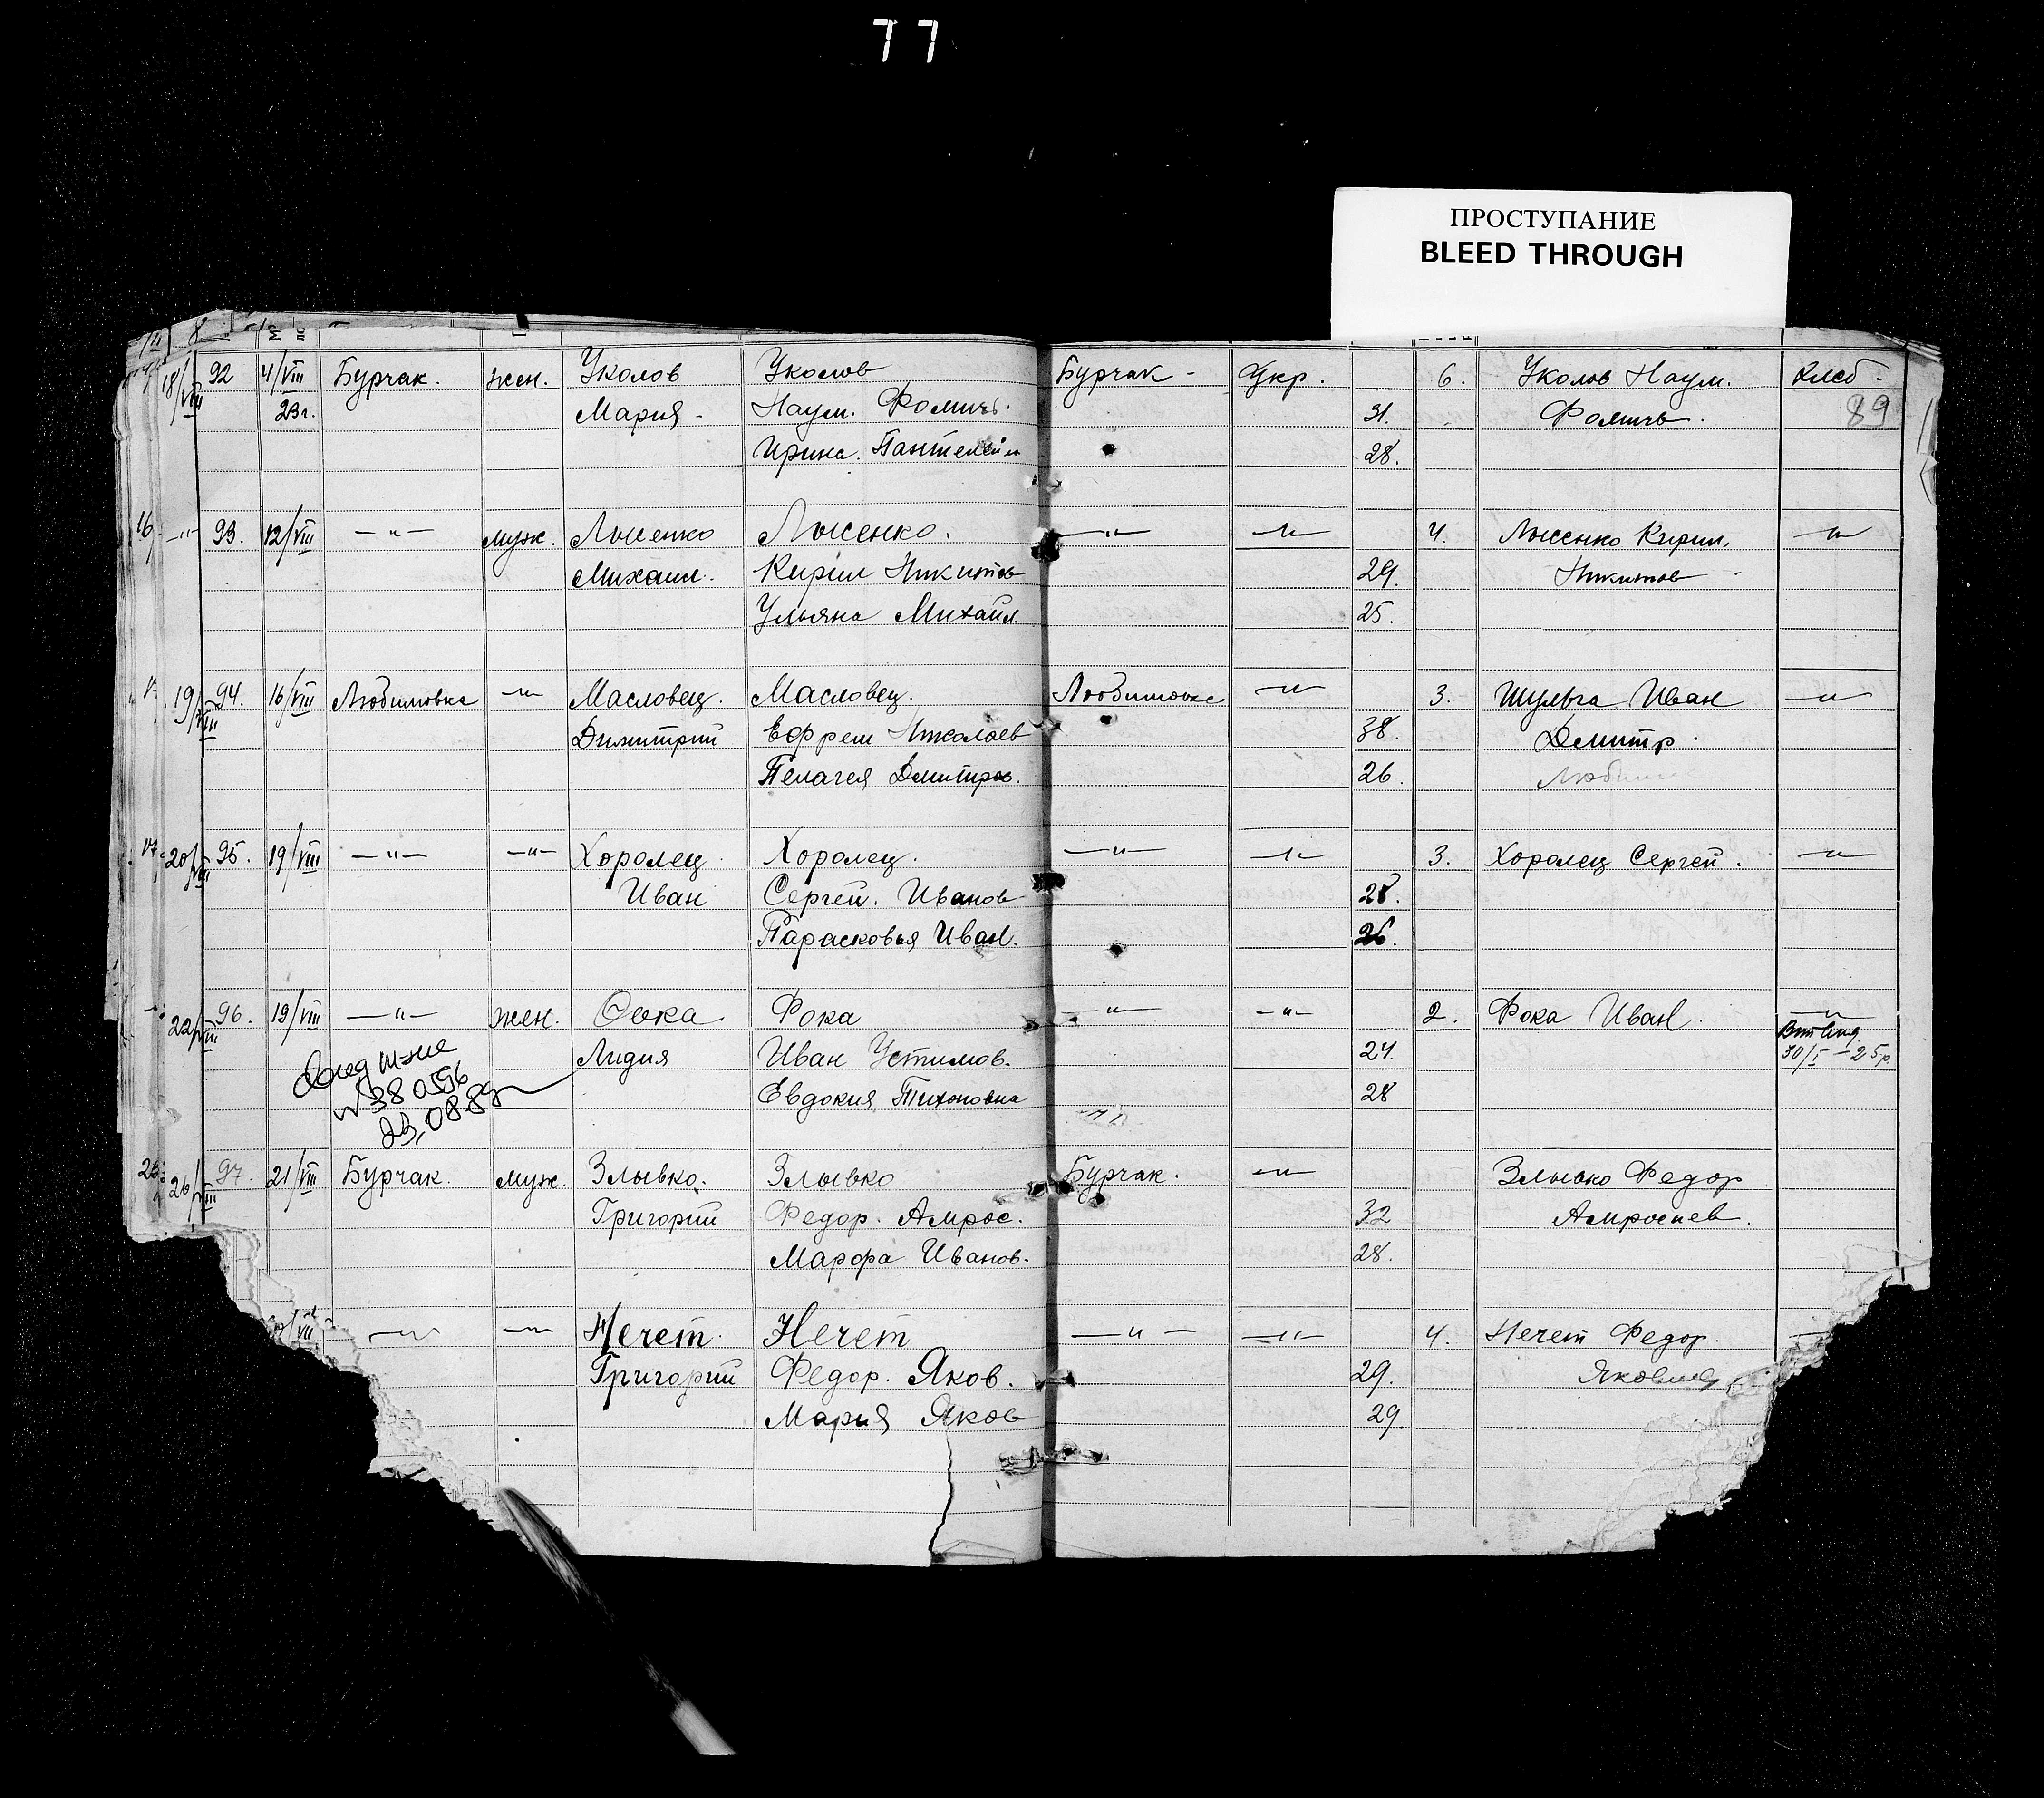 77
ПРОСТУПАНИЕ
BLEED THROUGH
8
18/VIII 92 4/VIII Бурчак. жен. Уколов Уколов Бурчак - Укр. 6. Уколов Наум. Хлеб.
23г. Мария - Наум. Фомичь. 31. Фомичь. 89
Ирина. Пантелейм 28.
16 —"— 93. 12/VIII —"— муж. Лысенко Лысенко. —"— —"— 4. Лысенко Кирил. —"—
Михаил. Кирил Никитов 29. Никитов
Ульяна Михайл. 25.
19/VIII 94. 16/VIII Любимовка —"— Масловец. Масловец. Любимовка —"— 3. Шульга Иван —"—
Димитрий Ефрем Николаев 38. Дмитр.
Пелагея Дмитров. 26.
20/VIII 95. 19/VIII —"— —"— Хоролец. Хоролец. —"— —"— 3. Хоролец Сергей. —"—
Иван Сергей. Иванов 28.
Парасковья Иван. 26.
22/VIII 96. 19/VIII —"— жен. Фока Фока —"— —"— 2. Фока Иван. —"—
Лидия Иван Устимов. 24. 30/I-25р.
№380596 Евдокия Тихоновна 28
23,08.89
26/VIII 97. 21/VIII Бурчак. муж. Злывко. Злывко Бурчак. —"— Злывко Федор
Григорий Федор. Амрос. 32 Амросиев.
Марфа Иванов. 28.
—"— —"— Нечет. Нечет —"— —"— 4. Нечет Федор.
Григорий Федор. Яков. 29.
Мария Яков 29.